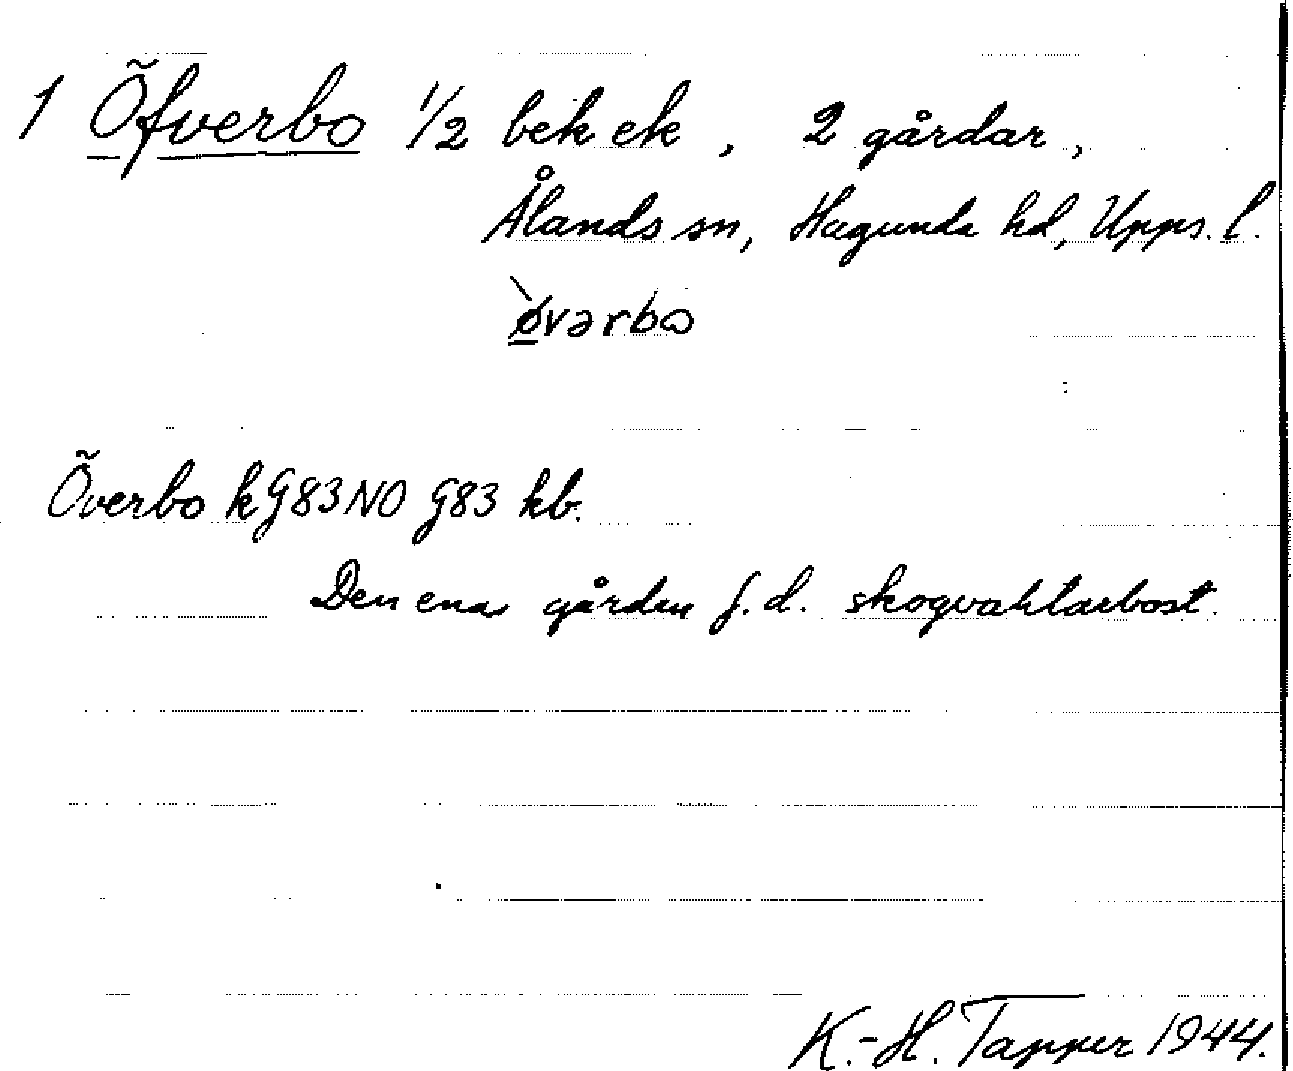 1 Öfverbo 1/2 bek ek, 2 gårdar,
Ålands sn, Hagunda hd, Upps. l.
ø̀vərbo
Överbo k G83NO G83 kb.
Den ena gården f.d. skogvaktarbost.
K.-H. Tapper 1944.